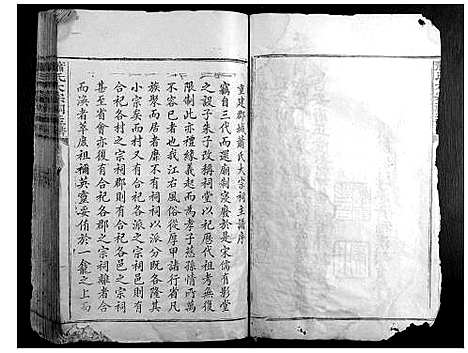 重建郡城蕭氏大宗祠主譜序
竊自三代而還廟制寖廢於是宋儒有影堂
之設子朱子改稱祠堂以祀歷代祖考無復
限制此亦禮緣義起而為孝子慈孫情所萬
不容已者也我江右風俗從厚甲諸行省凡
族聚而居者靡不有祠祠以派分既各隆其
小宗矣而村又有合村之宗祠邑則有
合祀各村之宗祠郡則有合祀各邑之宗祠
甚至省會亦有合祀各郡之宗祠夫離者合
而渙者萃庶祖禰英靈妥侑於一龕之上而